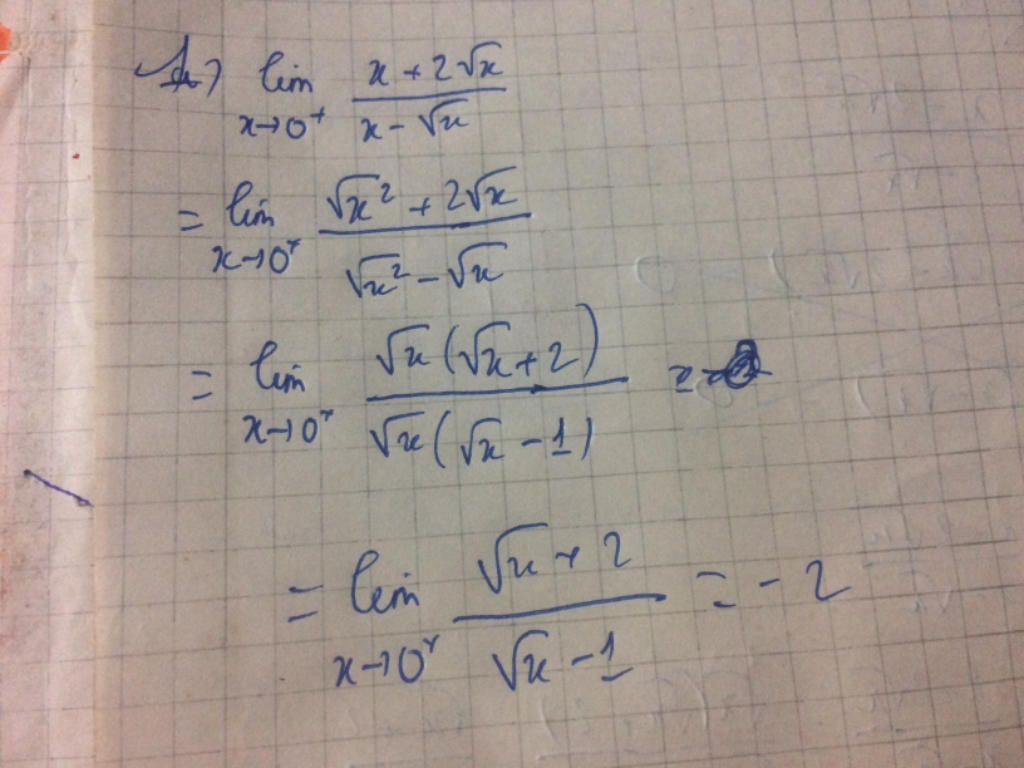 1a) lim x→0⁺ (x + 2√x)/(x - √x)
= lim x→0⁺ (√x² + 2√x)/(√x² - √x)
= lim x→0⁺ (√x(√x + 2))/(√x(√x - 1)) =
= lim x→0⁺ (√x + 2)/(√x - 1) = - 2